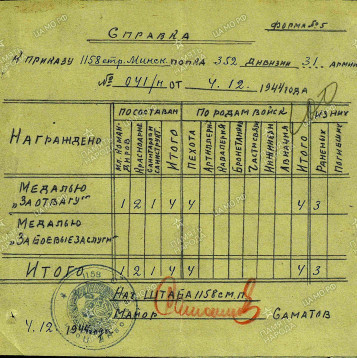 ФОРМА №5
СПРАВКА
К ПРИКАЗУ 1158 стр. Минск. полка 352 дивизии 31 армии
№ 041/н от 4.12.1944 года
НАГРАЖДЕНО ПО СОСТАВАМ ПО РОДАМ ВОЙСК ИЗ НИХ
МЛ. КОМАНДИРОВ КРАСНОАРМ. САНИТАРОВ САНИНСТР. ИТОГО ПЕХОТА АРТИЛЛЕРИЯ КАВАЛЕРИЯ БРОНЕТАНК. ЧАСТИ СВЯЗИ ИНЖЕНЕРН. АВИАЦИЯ ИТОГО РАНЕНЫХ ПОГИБШИХ
МЕДАЛЬЮ „ЗА ОТВАГУ" 1 2 1 4 4 4 3
МЕДАЛЬЮ „ЗА БОЕВЫЕ ЗАСЛУГИ"
ИТОГО 1 2 1 4 4 4 3
НАЧ. ШТАБА 1158 С.М.П.
МАЙОР САМАТОВ
4.12.1944 года